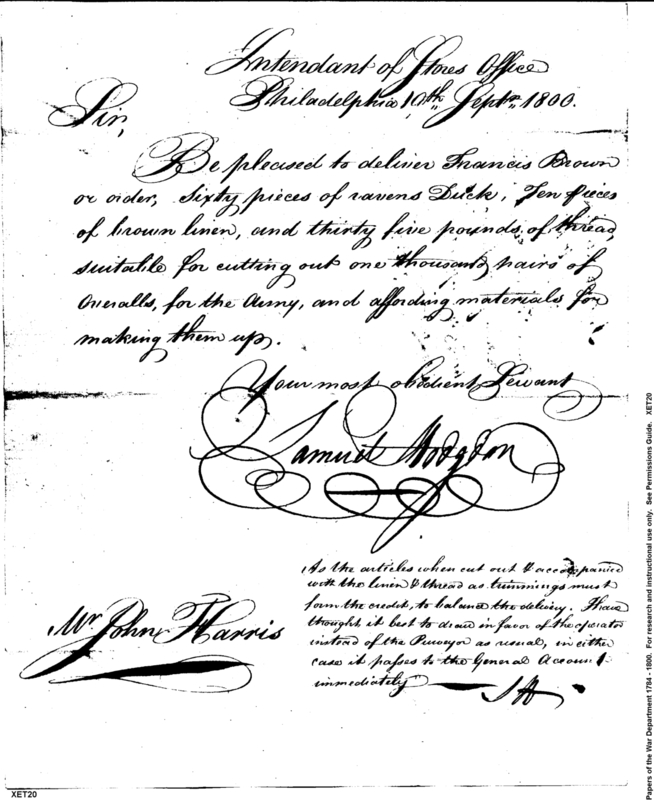 Intendant of Stores Office
Philadelphia 10th Septr. 1800.
Sir,
Be pleased to deliver Francis Brown
or order, Sixty pieces of ravens Duck, Ten pieces
of brown linen, and thirty five pounds of thread,
suitable for cutting out one thousand pairs of
Overalls, for the Army, and affording materials for
making them up.
Your most obedient Servant
Samuel Hodgdon
As the articles when cut out & accompanied
with the linen & thread as trimmings must
form the credit, to balance the delivery. I have
thought it best to draw in favor of the operator
instead of the Purveyor as usual, in either
case it passes to the General Account
immediately
SH
Mr. John Harris
XET20
Papers of the War Department 1784 - 1800. For research and instructional use only. See Permissions Guide. XET20